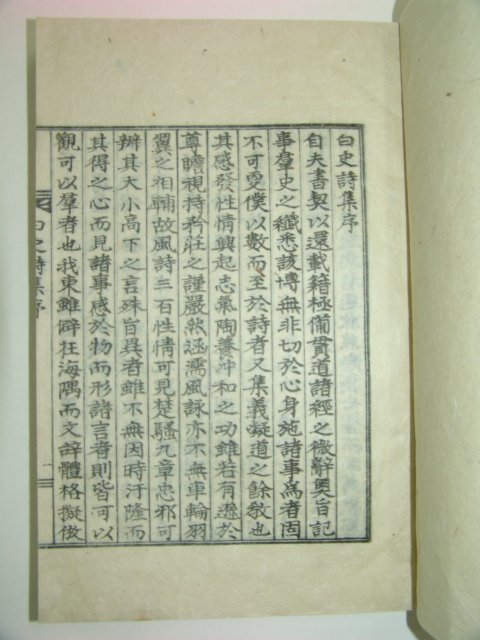 白史詩集序
自夫書契以還載籍極備貫道諸經之微辭奧旨記
事羣史之纖悉該博無非切於心身施諸事爲者固
不可更僕以數而至於詩者又集義凝道之餘敎也
其感發性情興起志氣陶養沖和之功雖若有遜於
尊瞻視持矜莊之謹嚴然涵濡風詠亦不無車輪羽
翼之相輔故風詩三百性情可見楚騷九章忠邪可
辨其大小高下之言殊旨異者雖不無因時汙隆而
其得之心而見諸事感於物而形諸言者則皆可以
觀可以羣者也我東雖僻在海隅而文辭體格擬倣
白史詩集序
一